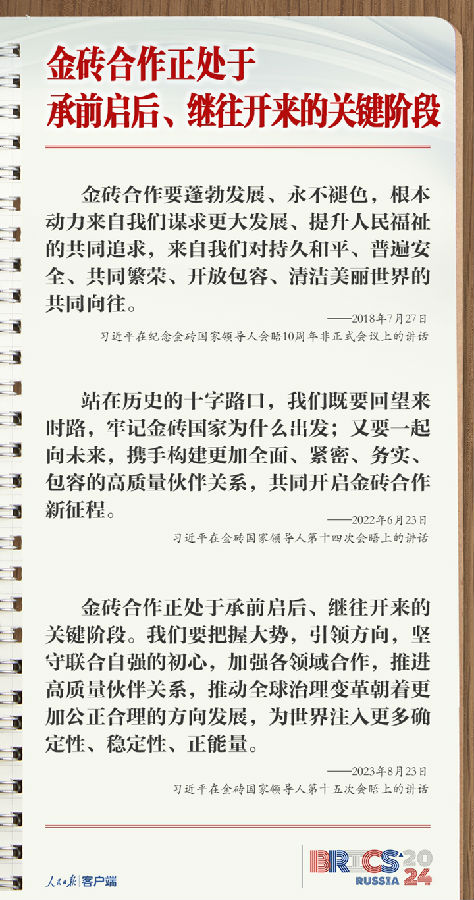 金砖合作正处于
承前启后、继往开来的关键阶段
金砖合作要蓬勃发展、永不褪色，根本
动力来自我们谋求更大发展、提升人民福祉
的共同追求，来自我们对持久和平、普遍安
全、共同繁荣、开放包容、清洁美丽世界的
共同向往。
——2018年7月27日
习近平在纪念金砖国家领导人会晤10周年非正式会议上的讲话
站在历史的十字路口，我们既要回望来
时路，牢记金砖国家为什么出发；又要一起
向未来，携手构建更加全面、紧密、务实、
包容的高质量伙伴关系，共同开启金砖合作
新征程。
——2022年6月23日
习近平在金砖国家领导人第十四次会晤上的讲话
金砖合作正处于承前启后、继往开来的
关键阶段。我们要把握大势，引领方向，坚
守联合自强的初心，加强各领域合作，推进
高质量伙伴关系，推动全球治理变革朝着更
加公正合理的方向发展，为世界注入更多确
定性、稳定性、正能量。
——2023年8月23日
习近平在金砖国家领导人第十五次会晤上的讲话
人民日报 客户端
BRICS 20
RUSSIA 24